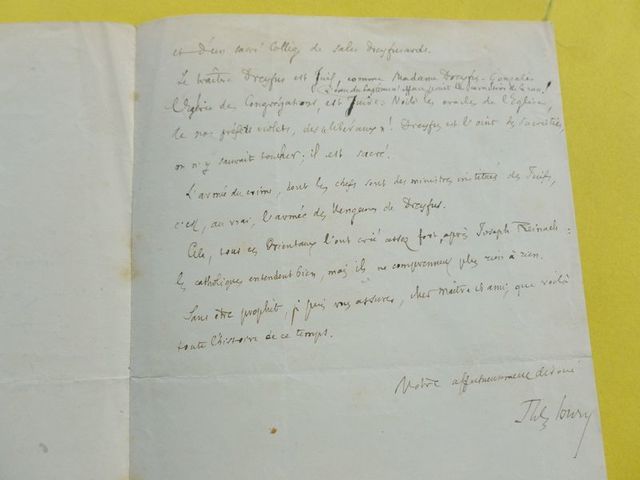 et d'un sacré Collège de sales Dreyfusards.
Le traître Dreyfus est Juif, comme Madame Dreyfus-Gonzalès
l'Eglise des Congrégations, est Juive. Voilà les oracles de l'Eglise,
de nos préfets violets, des libéraux! Dreyfus est l'oint des sacristies,
on n'y saurait toucher; il est sacré.
L'armée du crime, dont les chefs sont des ministres institués des Juifs,
c'est, au vrai, l'armée des Vengeurs de Dreyfus.
Cela, tous ces Orientaux l'ont crié assez fort, après Joseph Reinach:
les catholiques entendent bien, mais ils ne comprennent plus rien à rien.
Sans être prophète, je puis vous assurer, cher Maître et ami, que voilà
toute l'histoire de ce temps.
Votre affectueusement dévoué
Jules Soury